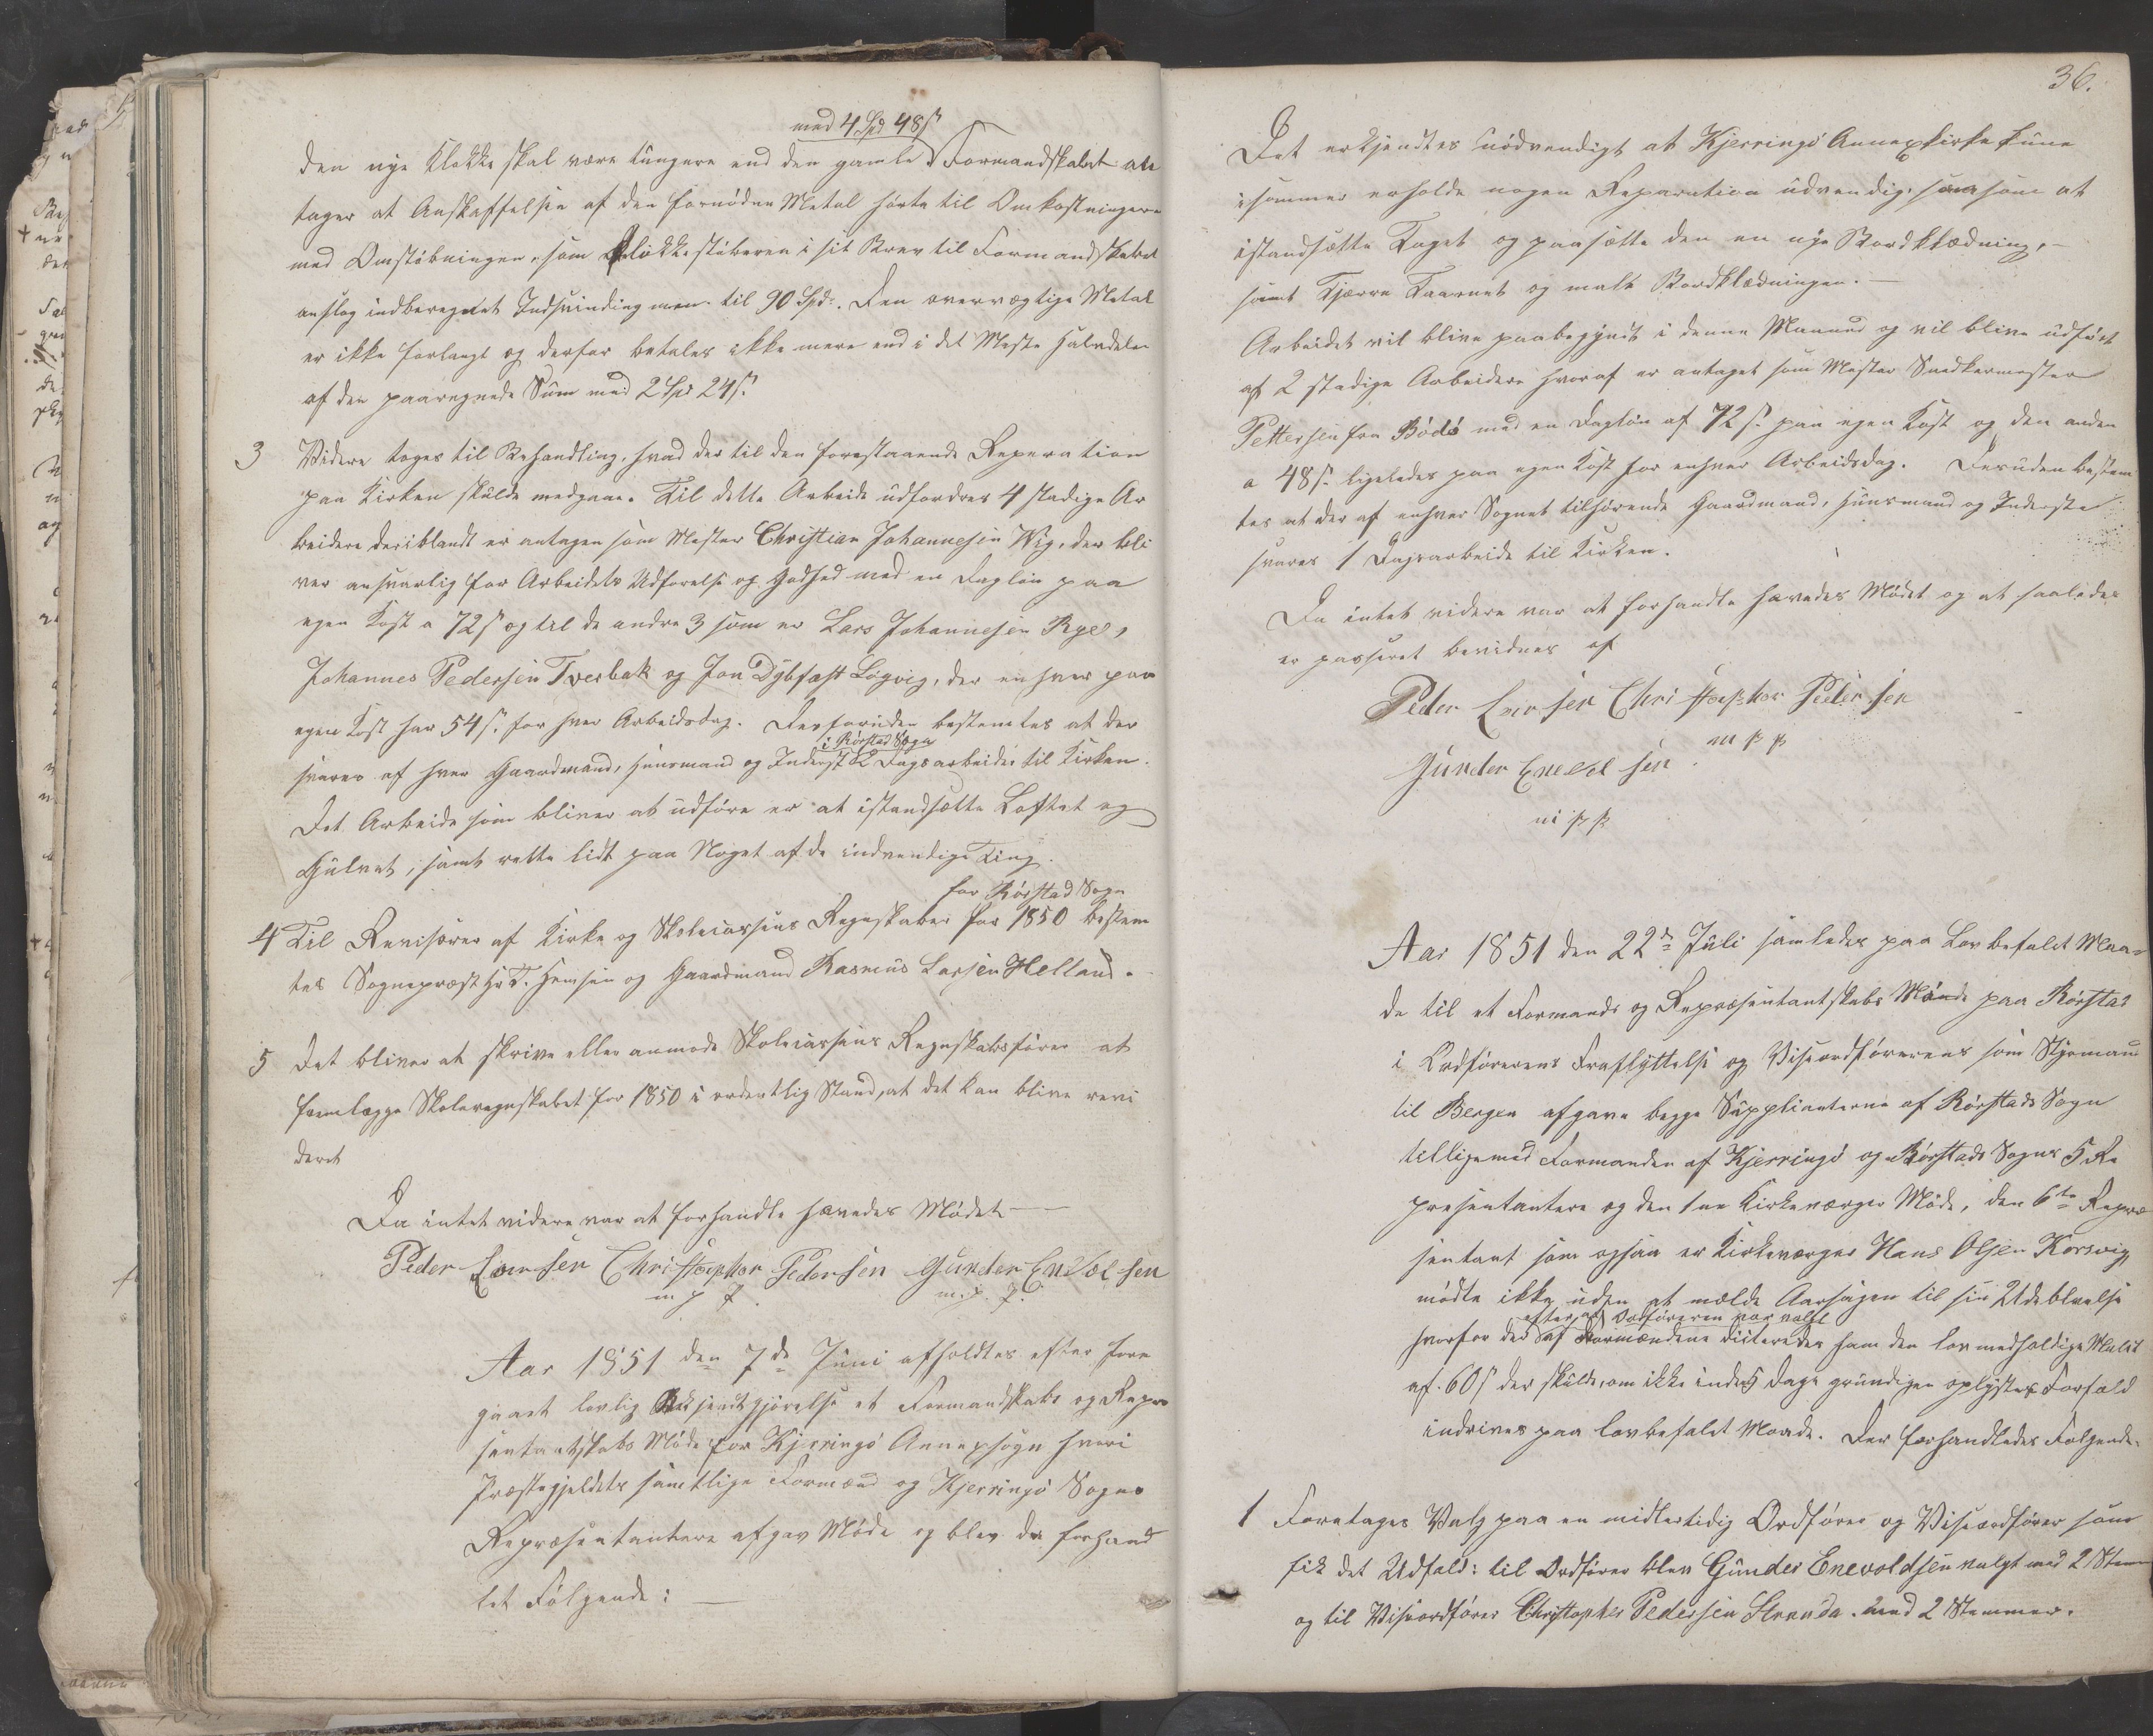 med 4 Spd 48 s
den nye Klokke skal være tungere end den gamle Formandskabet an
tager at Anskaffelsen af den fornødne Metal hørte til Omkostningerne
med Omstøbningen, som Klokkestøberen i sit Brev til Formandskabet
anslog indberegnet Indsvinding men til 90 Spd. Den overvægtige Metal
er ikke forlangt og derfor betales ikke mere end i det Meste Halvdelen
af den paaregnede Sum med 2 Spd 24 s.
3 Videre toges til Behandling, hvad der til den forestaaende Reperation
paa Kirken skulde medgaae. Til dette Arbeide udfordres 4 stadige Ar
beidere deriblandt er antagen som Mester Christian Johannesen Wig, der bli
ver ansvarlig for Arbeidets Udførelse og Godhed med en Dagløn paa
egen Kost a 72 s og til de andre 3 som er Lars Johannesen Rye,
Johannes Pedersen Tverbak og Jon Dybfest Løgvig, der enhver paa
egen Kost har 54 s. for hver Arbeidsdag. Desforuden bestemtes at der
i Rørstad Sogn
svares af hver Gaardmand, Huusmand og Inderst 2 Dagsarbeider til Kirken.
Det Arbeide som bliver at udføre er at istandsætte Loftet og
Gulvet, samt rette lidt paa Noget af de indvendige Ting.
for Rørstad Sogn
4 Til Revisorer af Kirke og Skolecassens Regnskaber for 1850 bestem
tes Sognepræst Hr T. Jensen og Gaardmand Rasmus Larsen Helland.
5 Det bliver at skrive eller anmode Skolecassens Regnskabsfører at
fremlægge Skoleregnskabet for 1850 i ordentlig Stand, at det kan blive revi
deret
Da intet videre var at forhandle hævedes Mødet
Peder Evensen Christopher Pedersen Gunder Enevoldsen
m p p. m. p. p.
Aar 1851 den 7de Juni afholdtes efter fore
gaaet lovlig Bekjendtgjørelse et Formandskabs og Repræ
sentantskabs Møde for Kjerringø Annexsogn hvori
Præstegjeldets samtlige Formænd og Kjerringø Sogns
Repræsentantere afgav Møde og blev da forhand
let Følgende:
36.
Det erkjendtes nødvendigt at Kjerringø Annexkirke kune
isommer erholde nogen Reparation udvendig, saasom at
istandsætte Taget og paasætte den en nye Bordklædning,
samt Tjærre Taarnet og male Bordklædningen.
Arbeidet vil blive paabegynt i denne Maaned og vil blive udført
af 2 stadige Arbeidere hvoraf er antaget som Mester Snedkermester
Pettersen fra Bodø med en Dagløn af 72 s. paa egen Kost og den anden
a 48 s. ligeledes paa egen Kost for enhver Arbeidsdag. Desuden bestem
tes at der af enhver Sognet tilhørende Gaardmand, Huusmand og Inderste
svares 1 Dagsarbeide til Kirken.
Da intet videre var at forhandle hævedes Mødet og at saaledes
er passeret bevidnes af
Peder Evensen Christopher Pedersen
m p p
Gunder Enevoldsen
m p p
Aar 1851 den 22de Juli samledes paa Lov befalet Maa-
de til et Formands og Repræsentantskabs Møde paa Rørstad
i Ordførerens Fraflyttelse og Viseordførerens som Styrmand
til Bergen afgave begge Supplianterne af Rørstads Sogn
tilligemed Formanden af Kjerringø og Rørstads Sogns 5 Re
presentantere og den ene Kirkeværger Møde, den 6te Repræ
sentant som ogsaa er Kirkeværger Hans Olsen Korsvig,
mødte ikke uden at mælde Aarsagen til sin Udeblivelse
efter at Ordføreren var valgt
hvorfor der af Formændene dicteredes ham den lovmedholdige Mulct
af 60 s der skulde, om ikke inden 5 Dage grundigen oplystes Forfald
indrives paa lovbefalet Maade. Der forhandledes Følgende:
1 Foretages Valg paa en midlertidig Ordfører og Viseordfører som
fik det Udfald: til Ordfører blev Gunder Enevoldsen valgt med 2 Stem
og til Viseordfører Christopher Pedersen Stranda med 2 Stemmer.